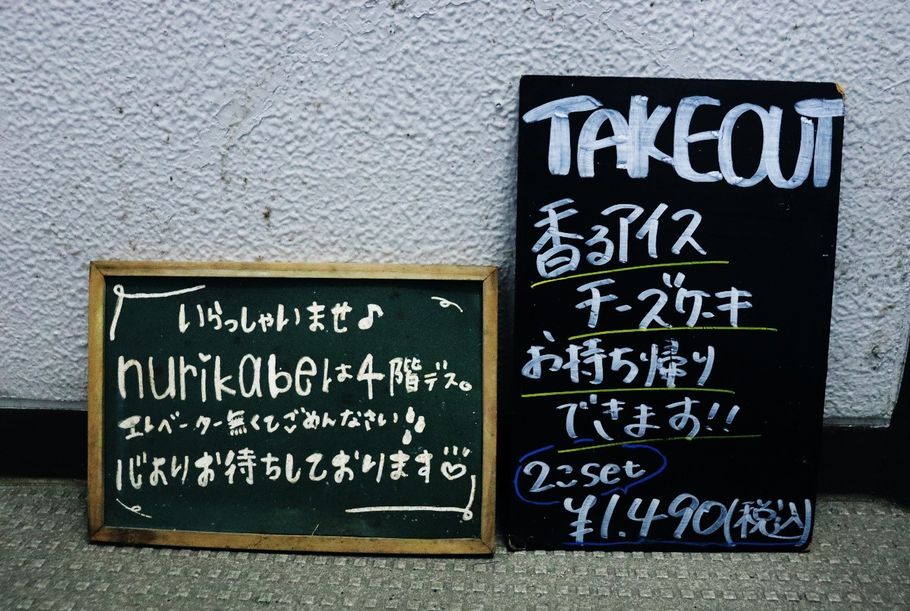 いらっしゃいませ♪
nurikabeは4階デス。
エレベーター無くてごめんなさい
心よりお待ちしております♡
TAKEOUT
香るアイス
チーズケーキ
お持ち帰り
できます!!
2こset
¥1.490(税込)